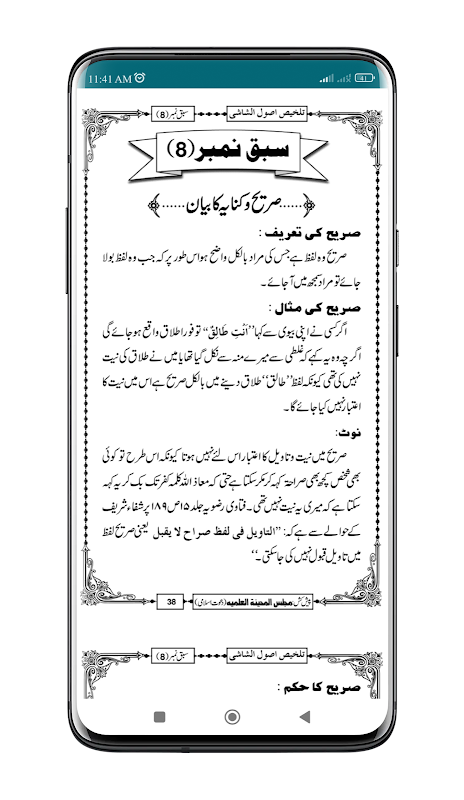 11:41 AM
61
تلخیص اصول الشاشی
سبق نمبر (8)
سبق نمبر (8)
......صریح و کنایہ کا بیان......
صریح کی تعریف :
صریح وہ لفظ ہے جس کی مراد بالکل واضح ہو اس طور پر کہ جب وہ لفظ بولا
جائے تو مراد سمجھ میں آجائے ۔
صریح کی مثال :
اگر کسی نے اپنی بیوی سے کہا ’’اَنْتِ طَالِقٌ‘‘ تو فوراً طلاق واقع ہو جائے گی
اگرچہ وہ یہ کہے کہ غلطی سے میرے منہ سے نکل گیا تھا یا میں نے طلاق کی نیت
نہیں کی تھی کیونکہ لفظ ’’طالق‘‘ طلاق دینے میں بالکل صریح ہے اس میں نیت کا
اعتبار نہیں کیا جائے گا۔
نوٹ:
صریح میں نیت و تاویل کا اعتبار اس لئے نہیں ہوتا کیونکہ اس طرح تو کوئی
بھی شخص کچھ بھی صراحۃ کہہ کر مکر سکتا ہے حتی کہ معاذ اللہ کلمہ کفر تک بک کر یہ کہہ
سکتا ہے کہ میری یہ نیت نہیں تھی۔ فتاوی رضویہ جلد ۱۵ ص ۱۸۹ پر شفاء شریف
کے حوالے سے ہے کہ: ’’التاویل فی لفظ صراح لا یقبل یعنی صریح لفظ
میں تاویل قبول نہیں کی جاسکتی۔‘‘
پیش کش: مجلس المدینۃ العلمیہ (دعوت اسلامی)
38
تلخیص اصول الشاشی
سبق نمبر (8)
صریح کا حکم :